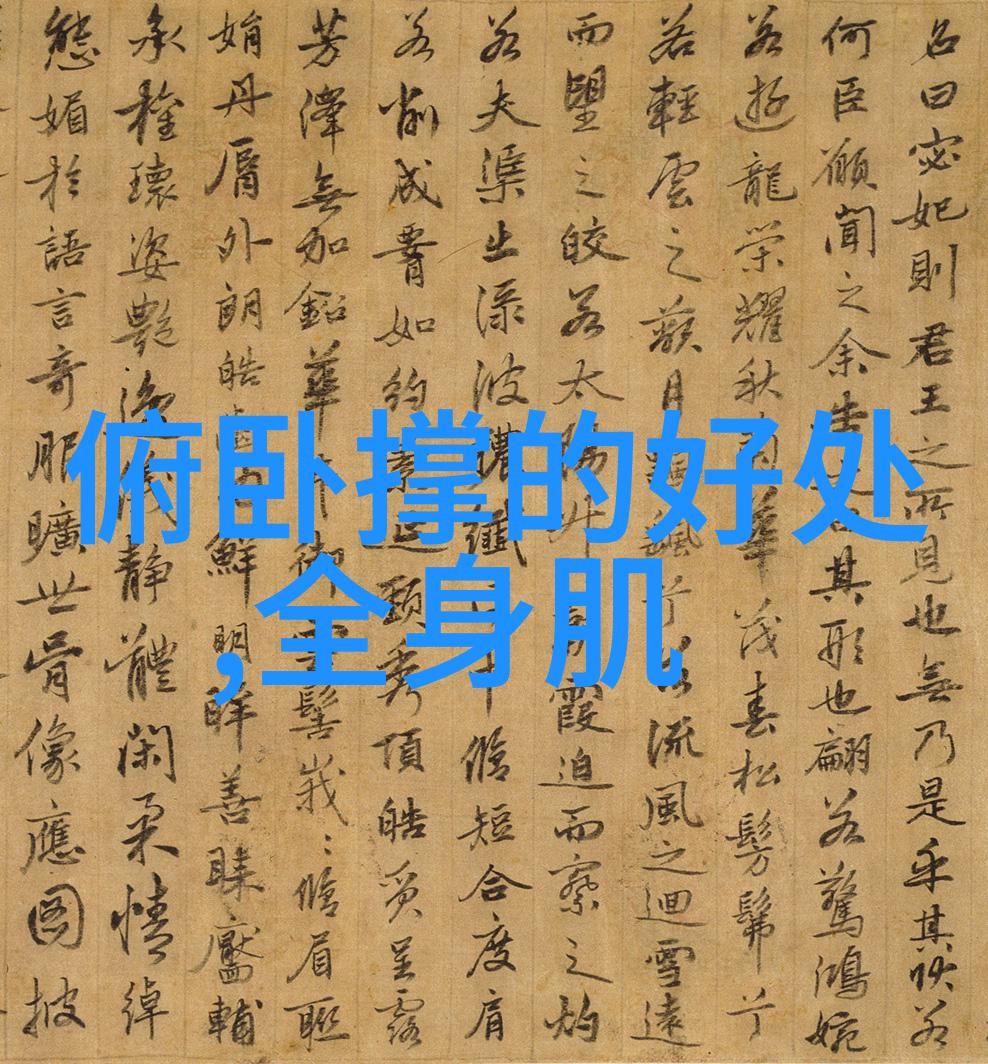 名曰宓妃則君王之所見也無乃是乎其狀若
何臣願聞之余告之曰其形也翩若驚鴻婉
若遊龍榮耀秋菊華茂春松髣髴兮
若輕雲之蔽月飄颻兮若流風之迴雪遠
而望之皎若太陽升朝霞迫而察之灼
若夫渠出淥波穠纖得中脩短合度肩
若削成腰如約素延頸秀項皓質呈露
芳澤無加鉛華弗御雲髻峩〻脩眉聯
娟丹脣外朗皓齒內鮮明眸善睞靨輔
承權瓌姿艷逸儀靜體閑柔情綽
態媚於語言奇服曠世骨像應圖披
俯卧撑的好处
,全身肌